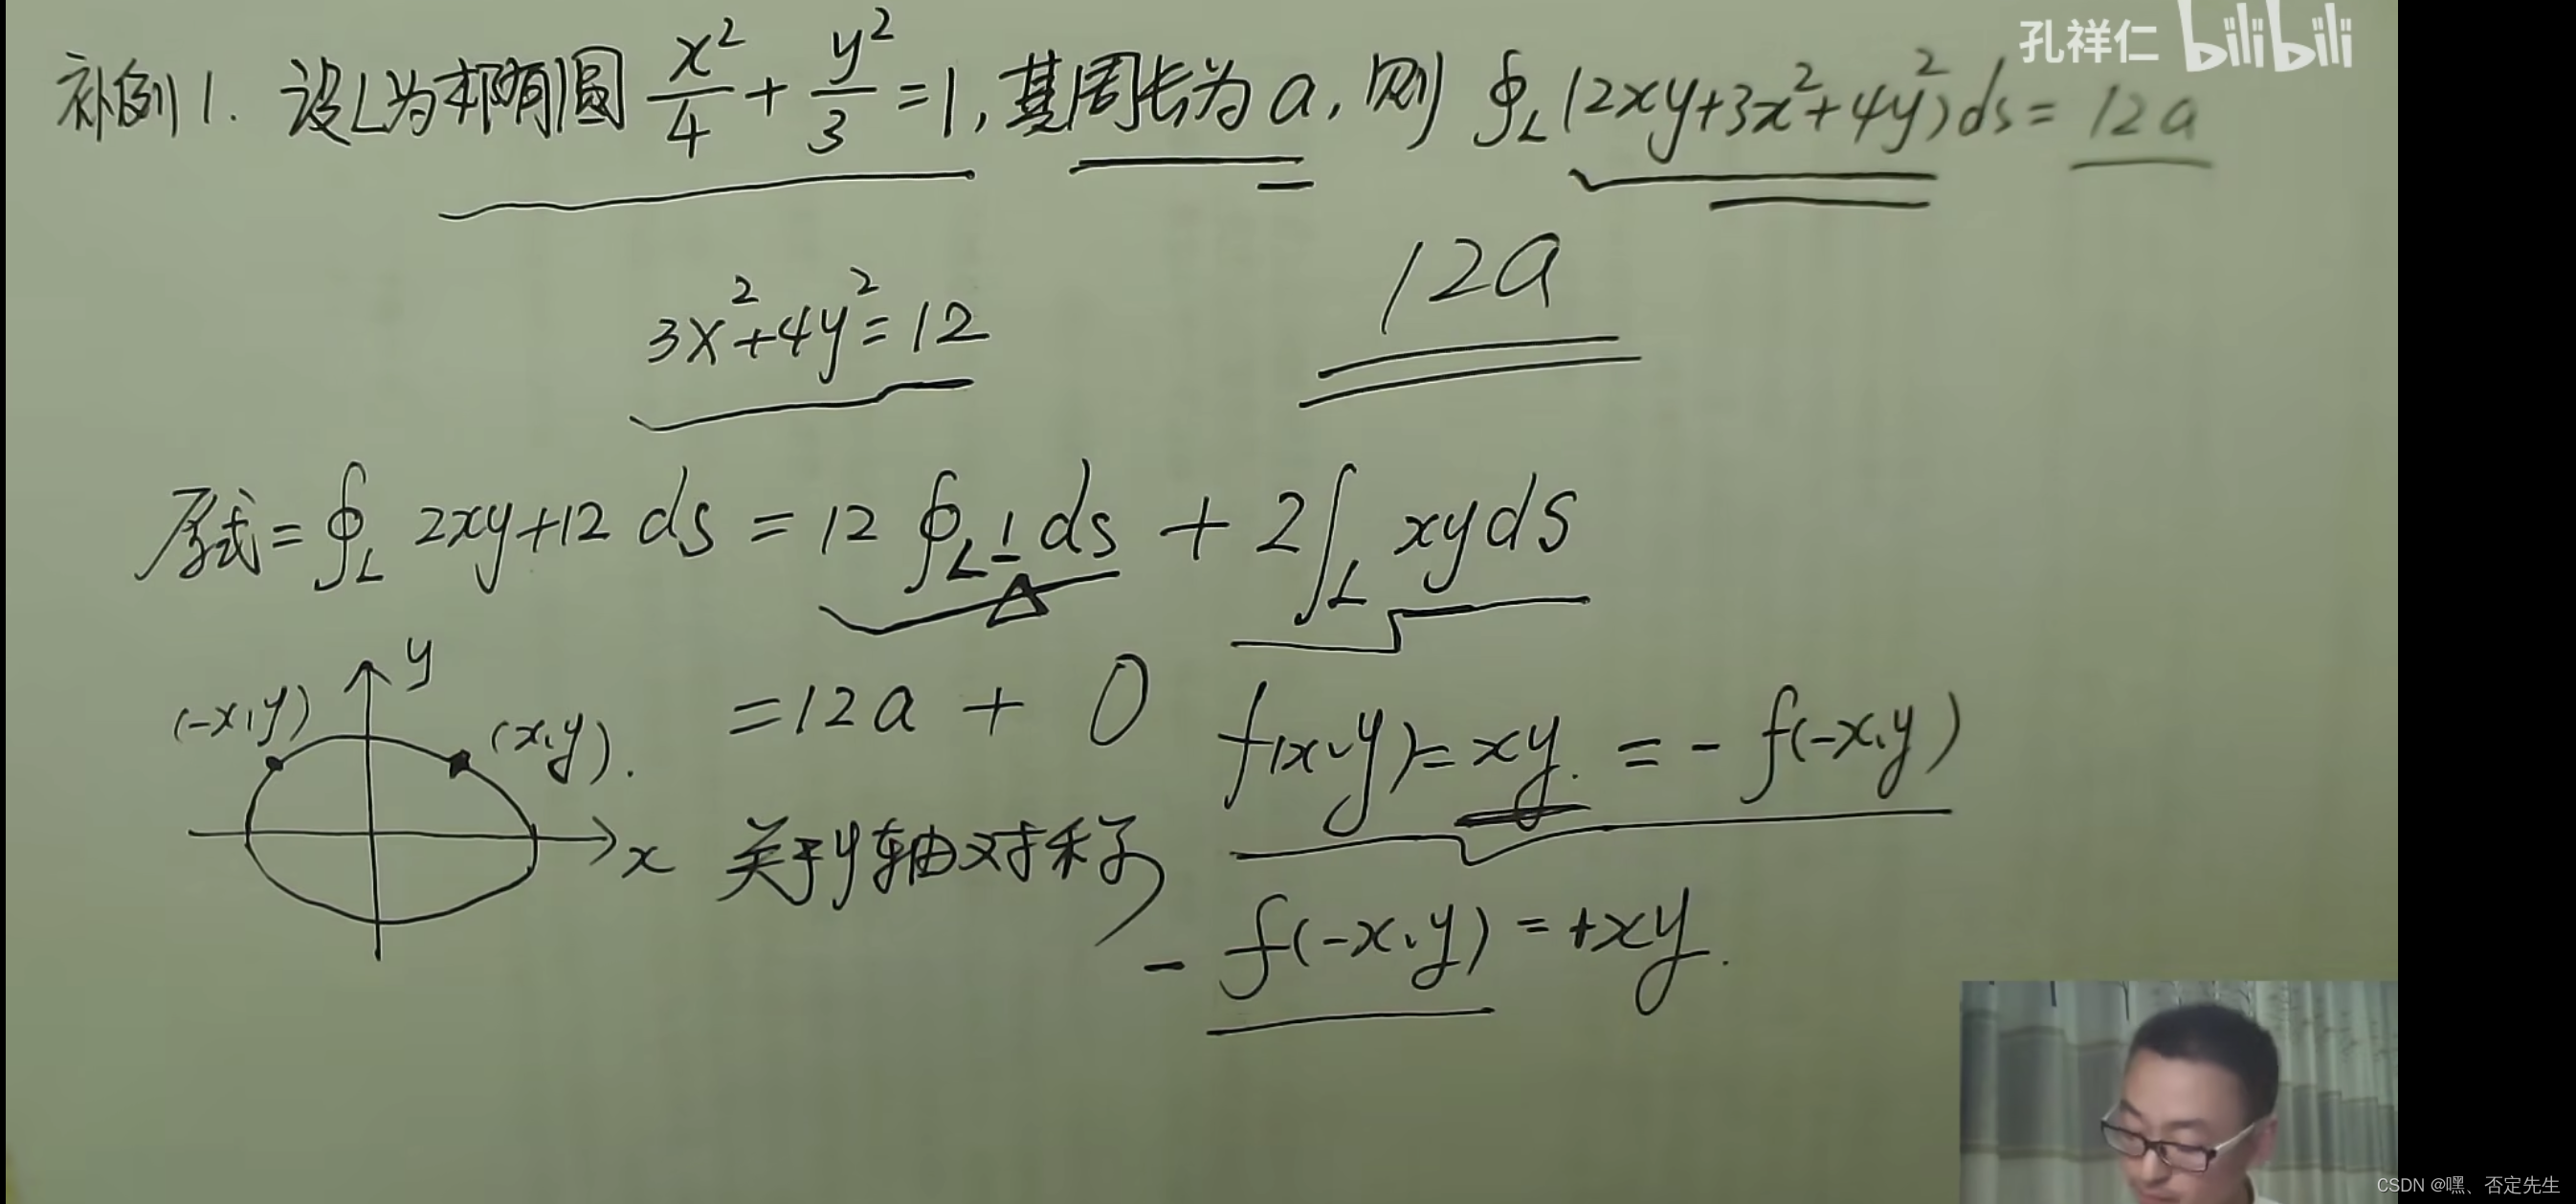 孔祥仁 bilibili
补例1. 设L为椭圆 x²/4 + y²/3 = 1, 其周长为a, 则 ∮_L (2xy+3x²+4y²)ds = 12a
3x²+4y²=12
12a
原式 = ∮_L 2xy+12 ds = 12 ∮_L 1 ds + 2∫_L xyds
= 12a + 0
y
(-x,y)
(x,y).
x
f(x,y)=xy. = -f(-x,y)
关于y轴对称
- f(-x,y) = +xy.
CSDN @嘿、否定先生